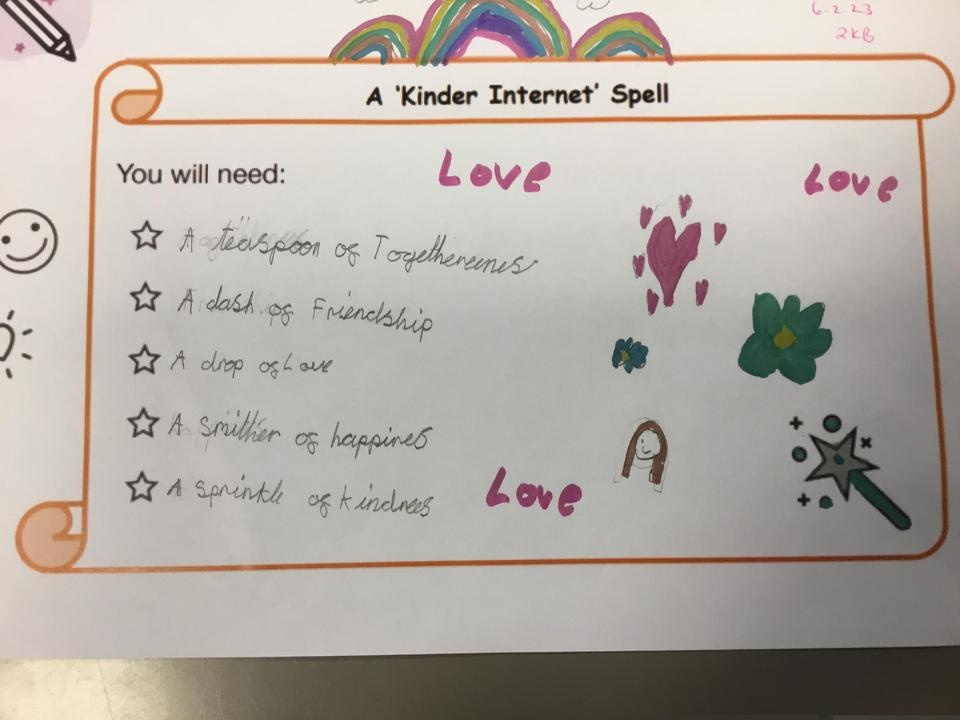 6.2.23
2KB
A 'Kinder Internet' Spell
You will need:
Love
Love
A teaspoon of Togethereenes
A dash of Friendship
A drop of Love
A smither of happines
A sprinkle of kindnees
Love